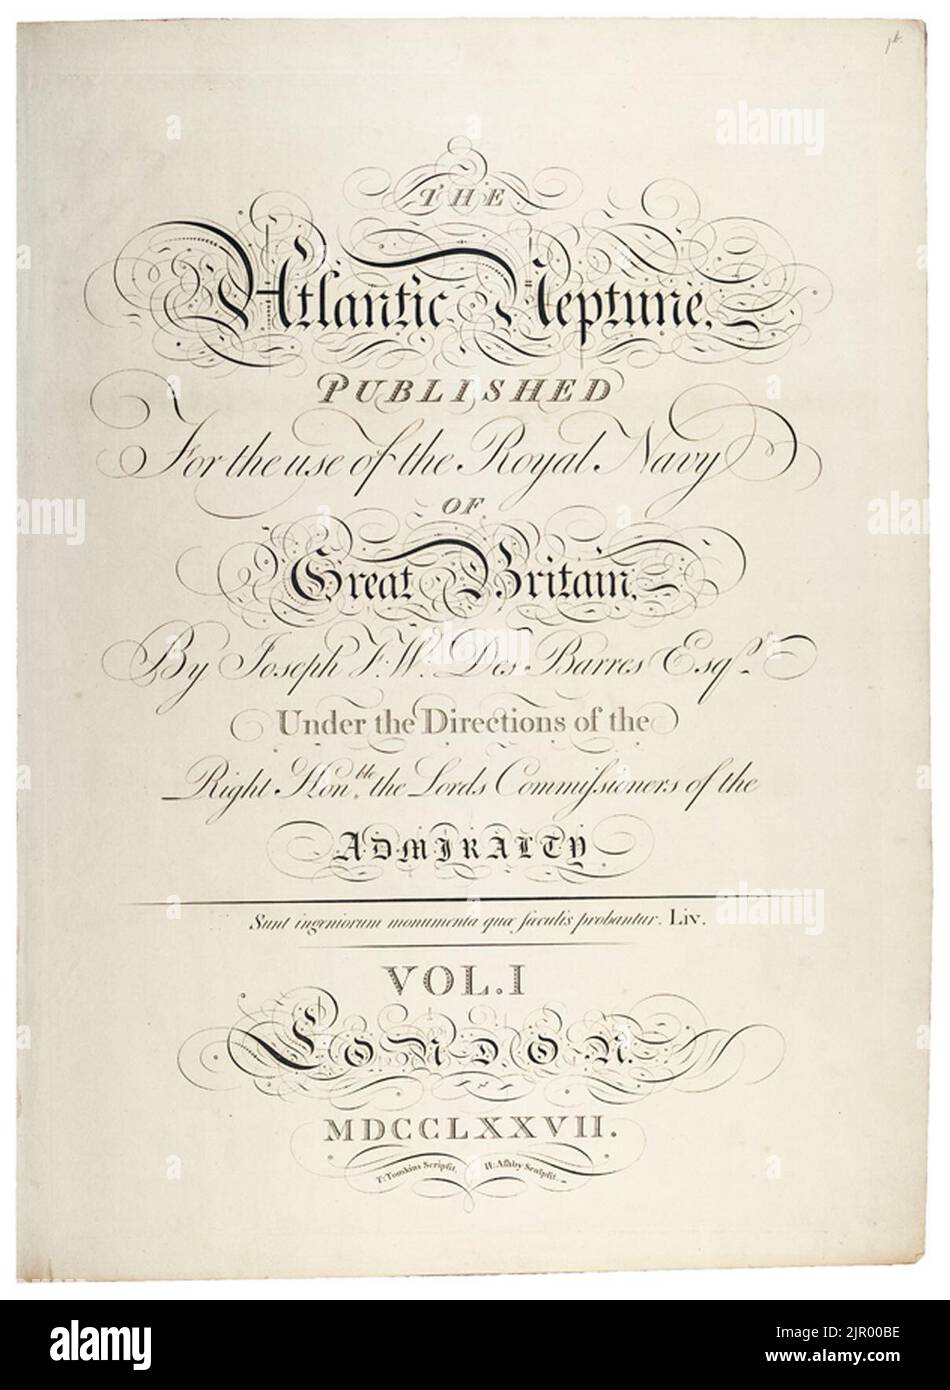 THE
Atlantic Neptune,
PUBLISHED
For the use of the Royal Navy
OF
Great Britain,
By Joseph F. W. Des Barres Esqr.
Under the Directions of the
Right Honble. the Lords Commiſsioners of the
ADMIRALTY.
Sunt ingeniorum monumenta quæ ſæculis probantur. Liv.
VOL. I
LONDON.
MDCCLXXVII.
T: Tomkins Scripſit. H: Aſhby Sculpſit.
alamy
Image ID: 2JR00BE
www.alamy.com